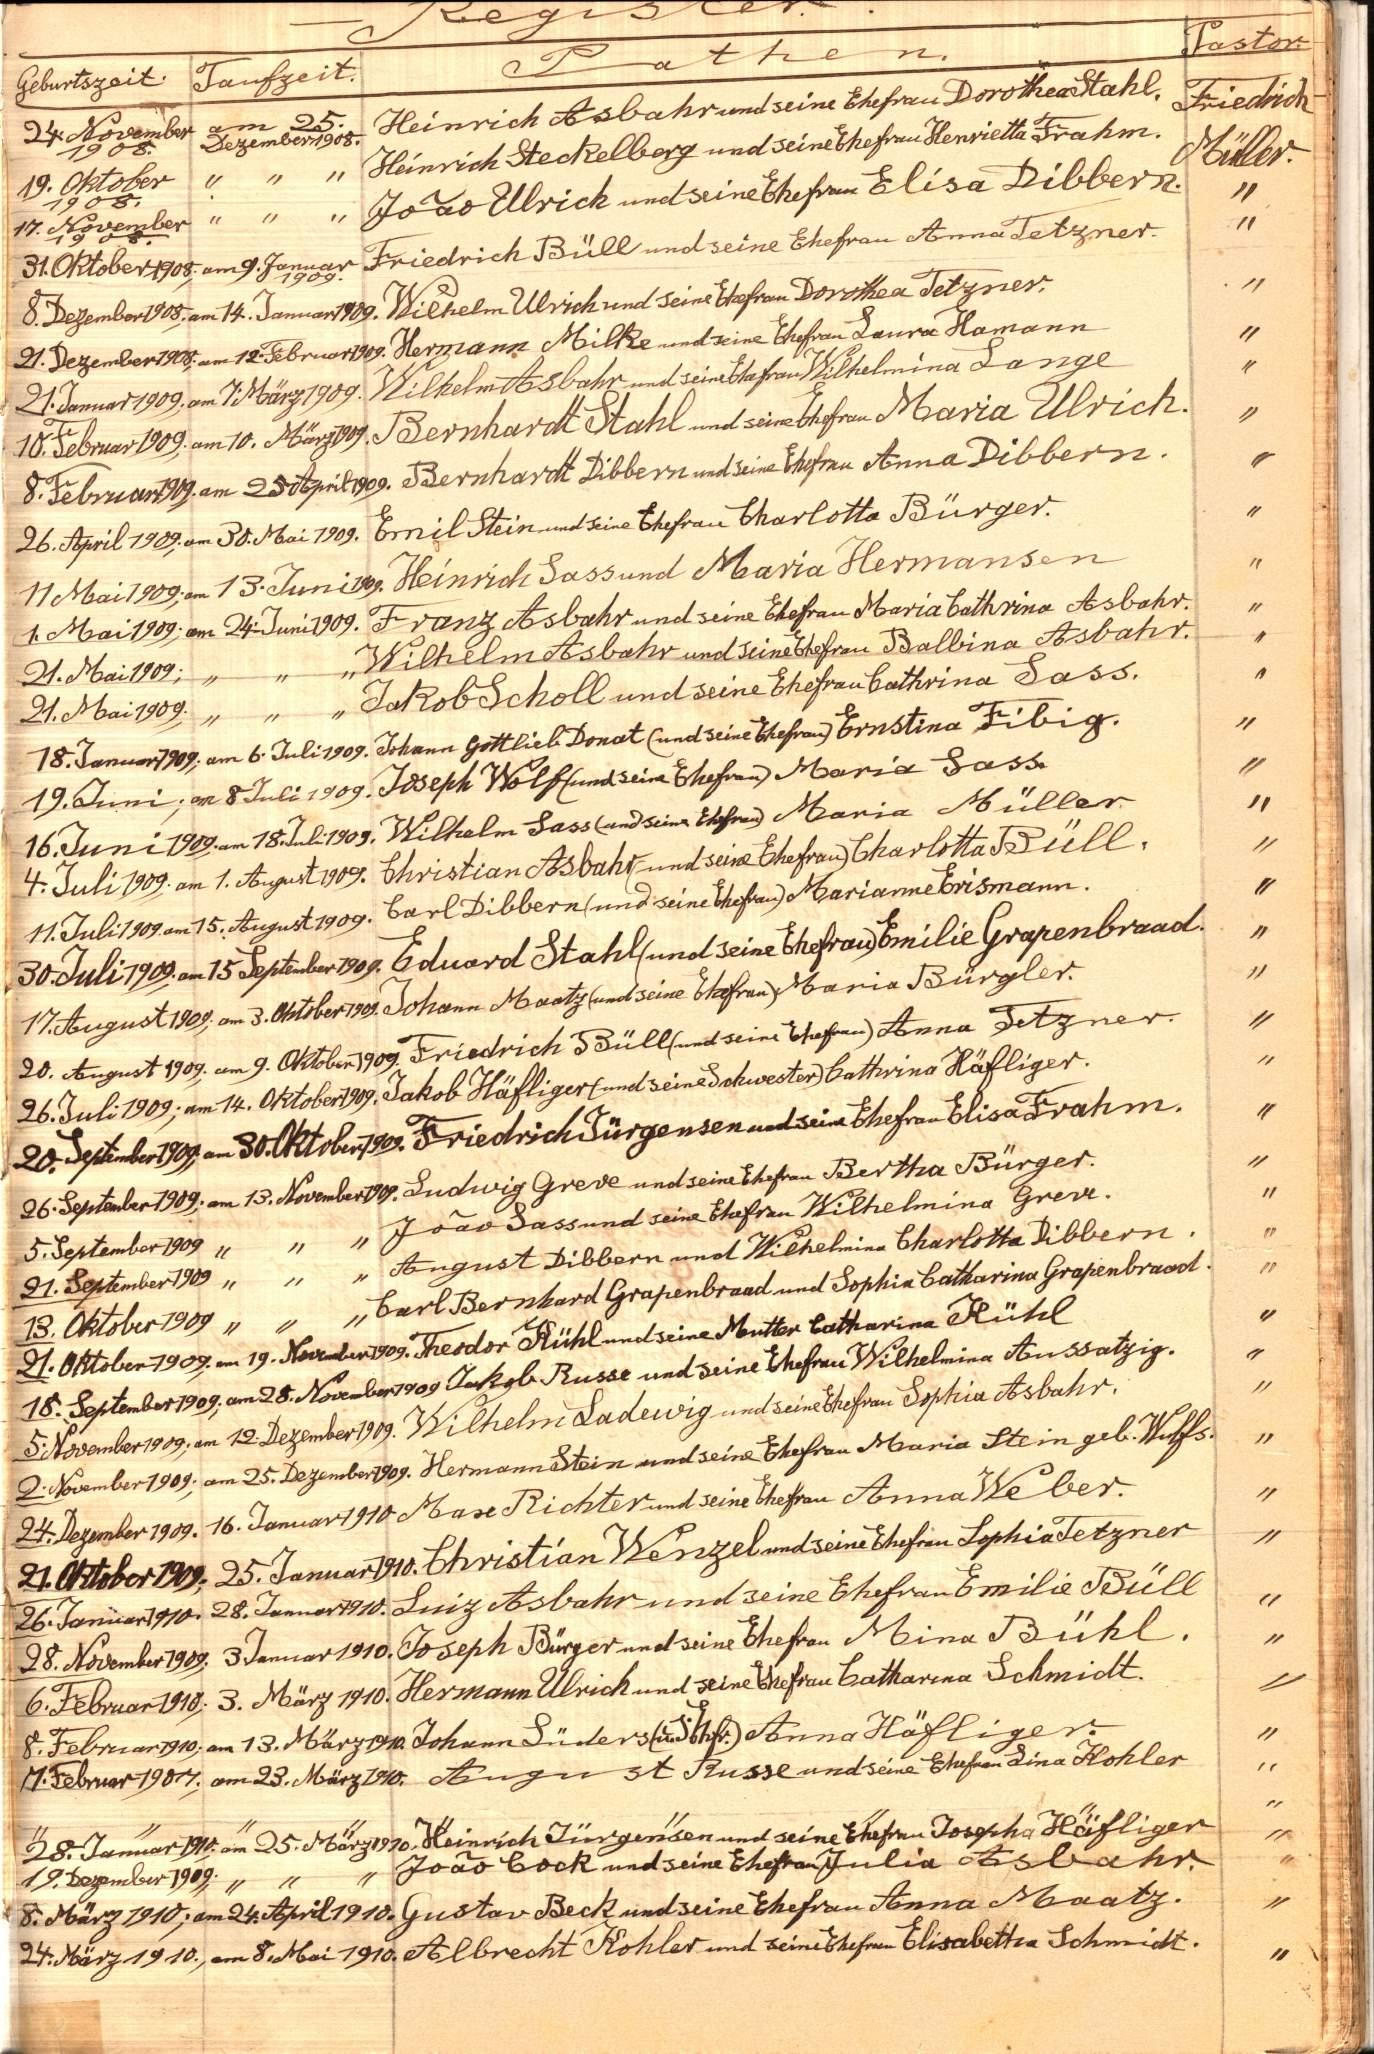 Register.
Geburtszeit. Taufzeit. Pathen. Pastor.
24. November 1908. am 25. Dezember 1908. Heinrich Asbahr und seine Ehefrau Dorothea Stahl. Friedrich
19. Oktober 1908. " " " Heinrich Steckelberg und seine Ehefrau Henrietta Frahm. Müller.
17. November 1908. " " " João Ulrich und seine Ehefrau Elisa Dibbern. "
31. Oktober 1908, am 9. Januar 1909. Friedrich Büll und seine Ehefrau Anna Tetzner. "
8. Dezember 1908, am 14. Januar 1909. Wilhelm Ulrich und seine Ehefrau Dorothea Tetzner. "
21. Dezember 1908, am 12. Februar 1909. Hermann Milke und seine Ehefrau Laura Hamann "
21. Januar 1909. am 7. März 1909. Wilhelm Asbahr und seine Ehefrau Wilhelmina Lange "
10. Februar 1909. am 10. März 1909. Bernhardt Stahl und seine Ehefrau Maria Ulrich. "
8. Februar 1909. am 25 April 1909. Bernhardt Dibbern und seine Ehefrau Anna Dibbern. "
26. April 1909; am 30. Mai 1909. Emil Stein und seine Ehefrau Charlotta Bürger. "
11 Mai 1909; am 13. Juni 1909. Heinrich Sass und Maria Hermansen "
1. Mai 1909; am 24. Juni 1909. Franz Asbahr und seine Ehefrau Maria Cathrina Asbahr. "
21. Mai 1909; " " " Wilhelm Asbahr und seine Ehefrau Balbina Asbahr. "
21. Mai 1909; " " " Jakob Scholl und seine Ehefrau Cathrina Sass. "
18. Januar 1909; am 6. Juli 1909. Johann Gottlieb Donat (und seine Ehefrau) Ernstina Fibig. "
19. Juni; am 8 Juli 1909. Joseph Wolf (und seine Ehefrau) Maria Sass. "
16. Juni 1909. am 18. Juli 1909. Wilhelm Sass (und seine Ehefrau) Maria Müller. "
4. Juli 1909. am 1. August 1909. Christian Asbahr (und seine Ehefrau) Charlotta Büll. "
11. Juli 1909. am 15. August 1909. Carl Dibbern (und seine Ehefrau) Marianne Erismann. "
30. Juli 1909. am 15 September 1909. Eduard Stahl (und seine Ehefrau) Emilie Grapenbraad. "
17. August 1909; am 3. Oktober 1909. Johann Maatz (und seine Ehefrau) Maria Bürgler. "
20. August 1909; am 9. Oktober 1909. Friedrich Büll (und seine Ehefrau) Anna Tetzner. "
26. Juli 1909; am 14. Oktober 1909. Jakob Häfliger (und seine Schwester) Cathrina Häfliger. "
20. September 1909; am 30. Oktober 1909. Friedrich Jürgensen und seine Ehefrau Elisa Frahm. "
26. September 1909; am 13. November 1909. Ludwig Greve und seine Ehefrau Bertha Bürger. "
5. September 1909 " " " João Sass und seine Ehefrau Wilhelmina Greve. "
21. September 1909 " " " August Dibbern und Wilhelmina Charlotta Dibbern. "
13. Oktober 1909 " " " Carl Bernhard Grapenbraad und Sophia Catharina Grapenbraad. "
21. Oktober 1909; am 19. November 1909. Theodor Kühl und seine Mutter Catharina Kühl "
18. September 1909; am 28. November 1909 Jakob Russe und seine Ehefrau Wilhelmina Aussatzig. "
5. November 1909; am 12. Dezember 1909. Wilhelm Ladewig und seine Ehefrau Sophia Asbahr. "
2. November 1909; am 25. Dezember 1909. Hermann Stein und seine Ehefrau Maria Stein geb. Wulfs. "
24. Dezember 1909. 16. Januar 1910 Max Richter und seine Ehefrau Anna Weber. "
21. Oktober 1909. 25. Januar 1910. Christian Wenzel und seine Ehefrau Sophia Tetzner "
26. Januar 1910. 28. Januar 1910. Luiz Asbahr und seine Ehefrau Emilie Büll "
28. November 1909. 3 Januar 1910. Joseph Bürger und seine Ehefrau Mina Bühl. "
6. Februar 1910; 3. März 1910. Hermann Ulrich und seine Ehefrau Catharina Schmidt. "
8. Februar 1910; am 13. März 1910. Johann Lüders (u. s. Ehfr.) Anna Häfliger. "
7. Februar 1907; am 23. März 1910. August Russe und seine Ehefrau Lina Kohler "
" " " " " " " " "
28. Januar 1910. am 25. März 1910. Heinrich Jürgensen und seine Ehefrau Josepha Häfliger "
19. Dezember 1909; " " " João Cock und seine Ehefrau Julia Asbahr. "
8. März 1910; am 24. April 1910. Gustav Beck und seine Ehefrau Anna Maatz. "
24. März 1910., am 8. Mai 1910. Albrecht Kohler und seine Ehefrau Elisabetha Schmidt. "